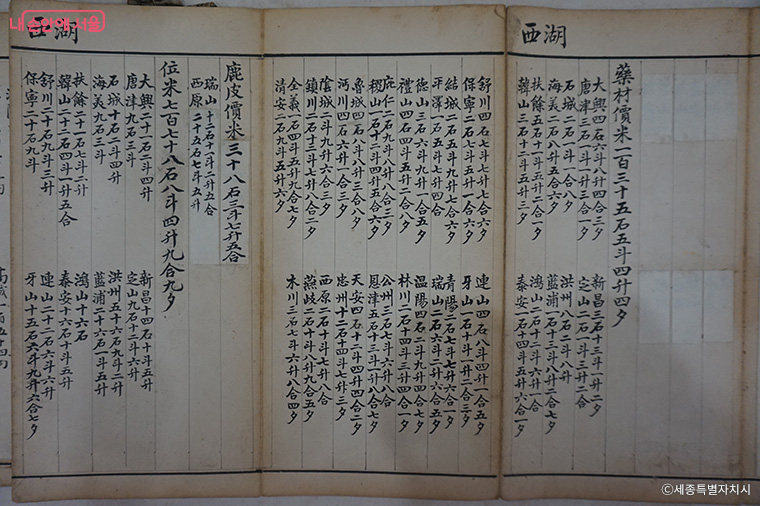 湖西
藥材價米一百三十五石五斗四升四夕
大興四石六斗八升四合三夕 新昌三石十三斗一升二夕
唐津三石一斗一升三合一夕 定山二石一斗三升二合
石城二石一斗一合八夕 洪州八石二斗八升
海美二石八斗五合六夕 藍浦一石十三斗八升二合七夕
扶餘五石一斗五升二合一夕 鴻山二石二斗六升一合
韓山三石一斗五升五合三夕 泰安一石三斗五升六合一夕
舒川四石七斗七升七合六夕 連山四石八斗四升一合五夕
保寧二石七斗五升一合六夕 牙山一石十斗一升二合三夕
結城二石五斗九升七合六夕 青陽二石七斗七升六合一夕
平澤一石五斗七升四合 瑞山二石六斗六合五夕
德山三石六斗九升一合五夕 溫陽四石二斗九升四合七夕
禮山四石四斗二升二合八夕 林川二石十四斗三升四合一夕
庇仁二石九斗八升八合三夕 公州三石七斗三升六合
稷山一石十二斗四升五合六夕 恩津五石十三斗一升八合七夕
魯城四石八斗八升三合八夕 天安四石二斗四升四合二夕
沔川四石六斗一升八合三夕 忠州十二石十四斗七升三夕
陰城二斗九升六合三夕 西原二石十斗七升八合
鎮川二石十二斗九升八合二夕 燕岐二石七斗八升九合五夕
全義一石四斗五升九合七夕 木川三石七斗六升八合四夕
清安二石九斗五升六夕
湖西
鹿皮價米三十八石三斗七升五合
瑞山十二石十二斗二升五合
西原二十五石七斗五升
位米七百七十八石八斗四升九合九夕
大興二十一石二斗四升 新昌十四石十斗五升
唐津九石三斗 定山九石十二斗六升
石城十石二斗四升 洪州五十六石九斗二升
海美九石三斗 藍浦二十六石一斗五升
扶餘二十一石七斗二升 鴻山十六石
韓山二十二石四斗一升五合 泰安十六石十斗五升
舒川二十石九斗三升 連山二十二石六斗六升
保寧二十石九斗 牙山十五石六斗九升六合七夕
내 손안에 서울
©세종특별자치시